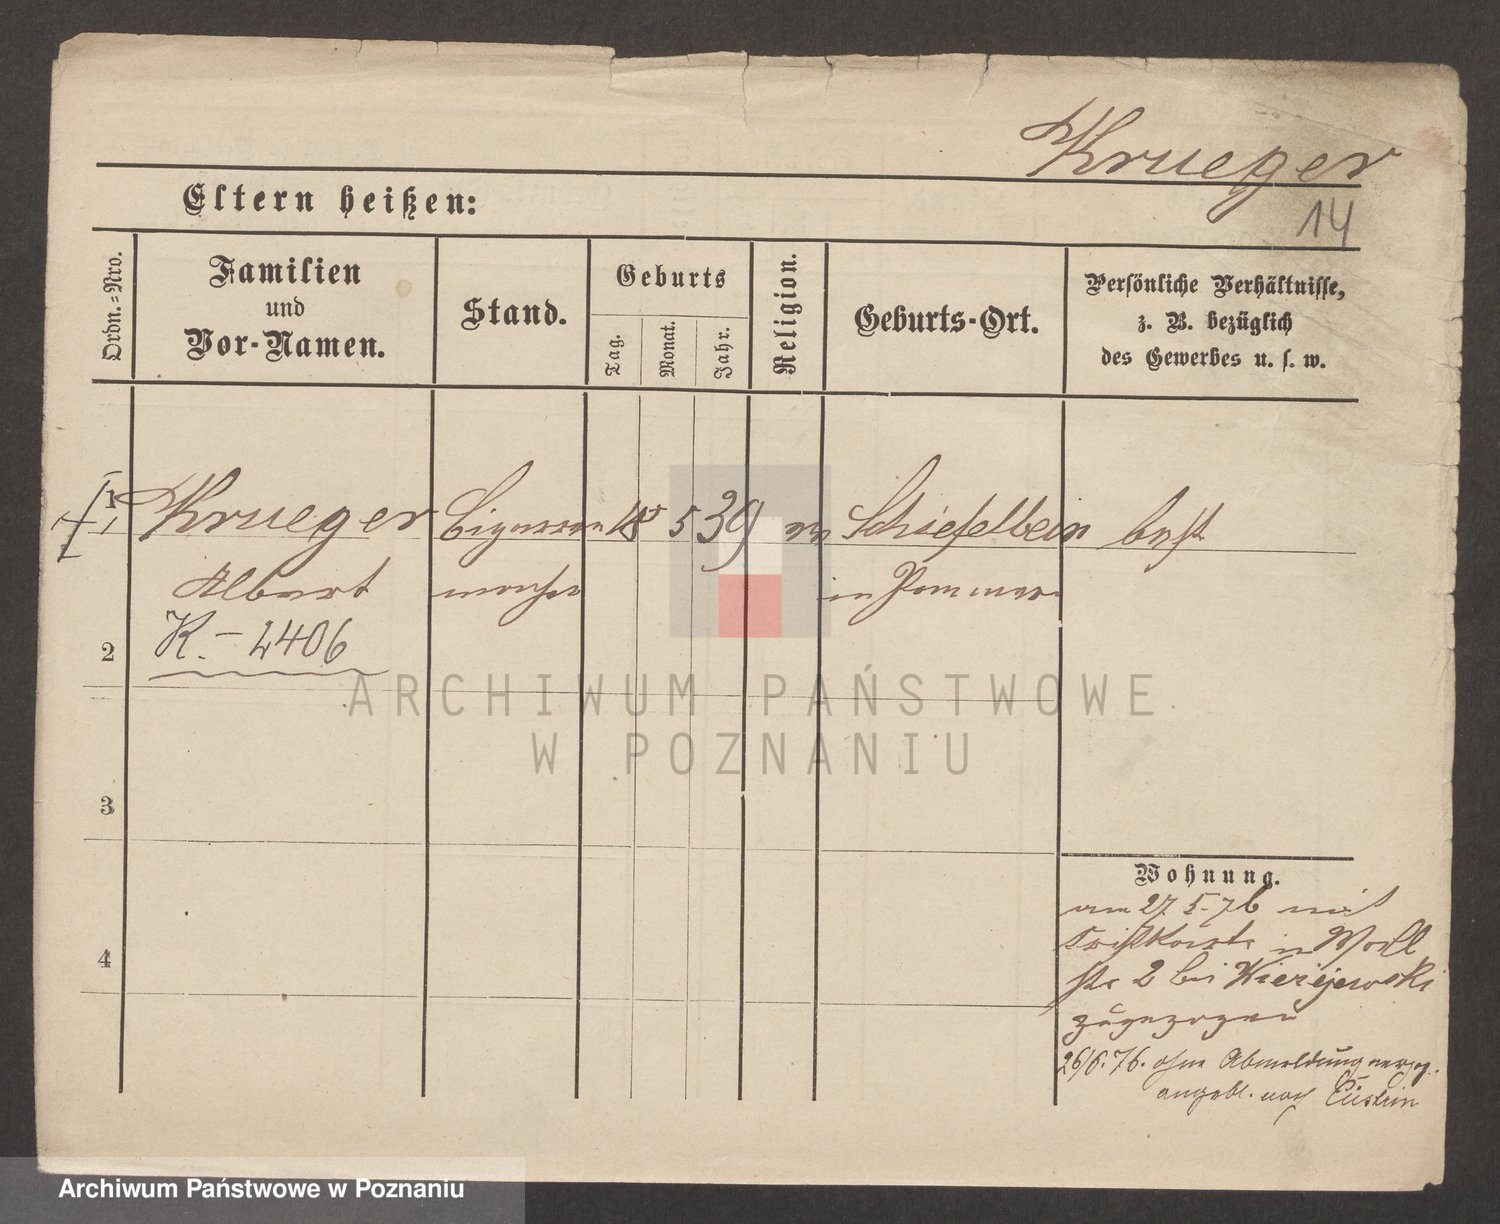 Krueger
14
Eltern heißen:
Ordn.=Nro.
Familien
und
Vor-Namen.
Stand.
Geburts
Tag.
Monat.
Jahr.
Religion.
Geburts-Ort.
Persönliche Verhältnisse,
z. B. bezüglich
des Gewerbes u. s. w.
1 Krueger Cigarren 18 5 39 ev Schiefelbein
Albert macher in Pommern
K. - 2406
2
3
4
Wohnung.
am 27 5. 76 mit
in
str 2 bei Kierejewski
zugezogen
26/6. 76. ohne Abmeldung verzog.
angebl. nach Cüstrin
ARCHIWUM PAŃSTWOWE
W POZNANIU
Archiwum Państwowe w Poznaniu